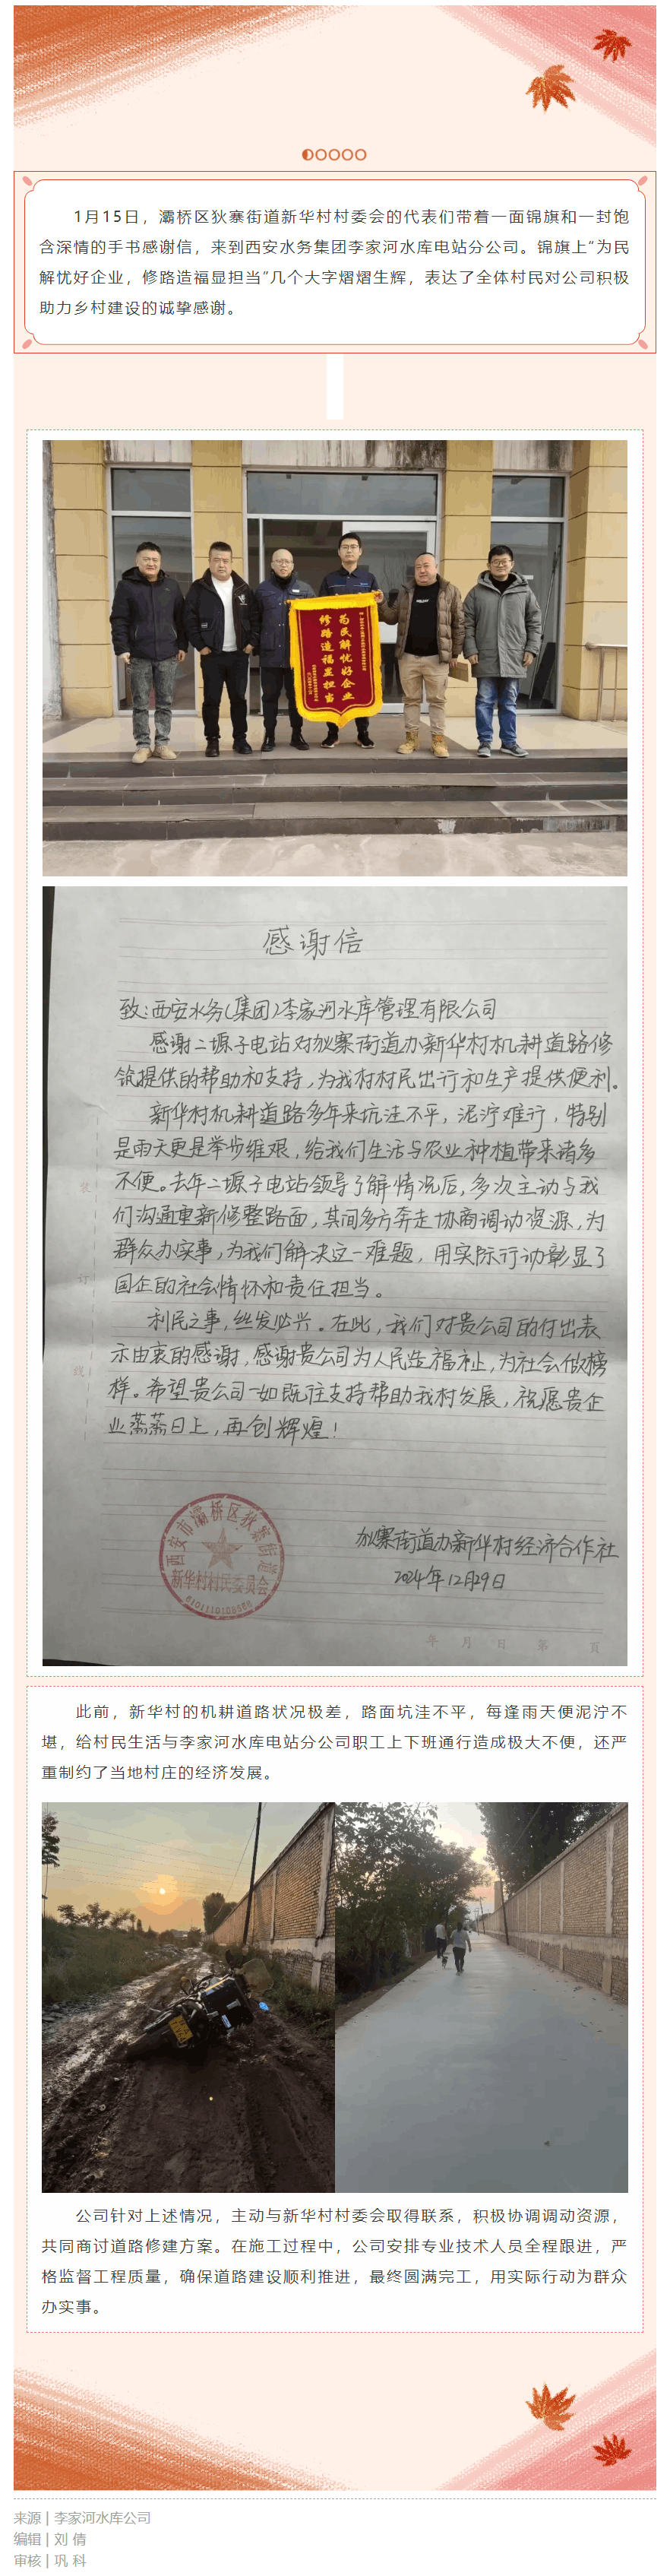 1月15日，灞桥区狄寨街道新华村村委会的代表们带着一面锦旗和一封饱
含深情的手书感谢信，来到西安水务集团李家河水库电站分公司。锦旗上“为民
解忧好企业，修路造福显担当”几个大字熠熠生辉，表达了全体村民对公司积极
助力乡村建设的诚挚感谢。
为民解忧好企业
修路造福显担当
感谢信
致：西安水务（集团）李家河水库管理有限公司
感谢二塬子电站对狄寨街道办新华村机耕道路修
筑提供的帮助和支持，为我村村民出行和生产提供便利。
新华村机耕道路多年来坑洼不平，泥泞难行，特别
是雨天更是举步维艰，给我们生活与农业种植带来诸多
不便。去年二塬子电站领导了解情况后，多次主动与我
们沟通重新修整路面，其间多方奔走协商调动资源，为
群众办实事，为我们解决这一难题，用实际行动彰显了
国企的社会情怀和责任担当。
利民之事，丝发必兴。在此，我们对贵公司的付出表
示由衷的感谢，感谢贵公司为人民造福祉，为社会做榜
样。希望贵公司一如既往支持帮助我村发展，祝愿贵企
业蒸蒸日上，再创辉煌！
装
订
线
西安市灞桥区狄寨街道
新华村村民委员会
狄寨街道办新华村经济合作社
2024年12月29日
年 月 日 第 页
此前，新华村的机耕道路状况极差，路面坑洼不平，每逢雨天便泥泞不
堪，给村民生活与李家河水库电站分公司职工上下班通行造成极大不便，还严
重制约了当地村庄的经济发展。
公司针对上述情况，主动与新华村村委会取得联系，积极协调调动资源，
共同商讨道路修建方案。在施工过程中，公司安排专业技术人员全程跟进，严
格监督工程质量，确保道路建设顺利推进，最终圆满完工，用实际行动为群众
办实事。
来源 | 李家河水库公司
编辑 | 刘 倩
审核 | 巩 科